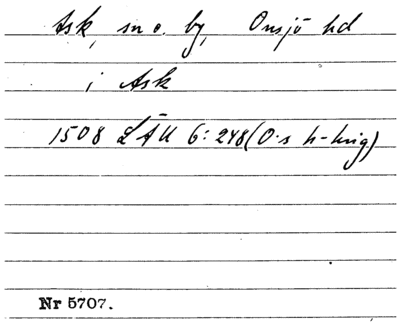 Ask, sn o. by, Onsjö hd
i Ask
1508 LÄU 6:248 (O:s h-krig)
Nr 5707.